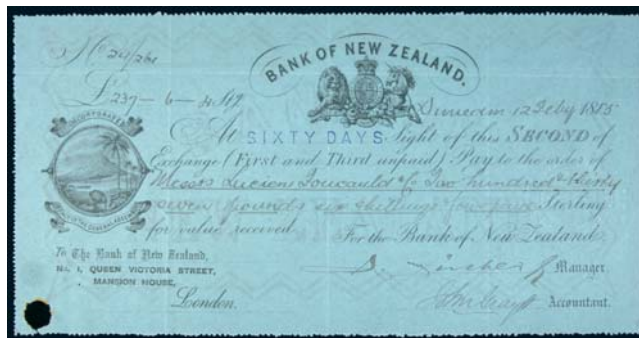 No 24/261
BANK OF NEW ZEALAND.
£ 237 – 6 – 4 Stg
Dunedin 12 Feby 1885
INCORPORATED
At SIXTY DAYS Sight of this SECOND of
Exchange (First and Third unpaid) Pay to the order of
Messrs Lucien Foucauld & Co Two hundred & thirty
seven pounds six shillings & fourpence Sterling
for value received.
For the Bank of New Zealand
To The Bank of New Zealand,
No. 1, QUEEN VICTORIA STREET,
MANSION HOUSE,
London.
Manager.
Accountant.